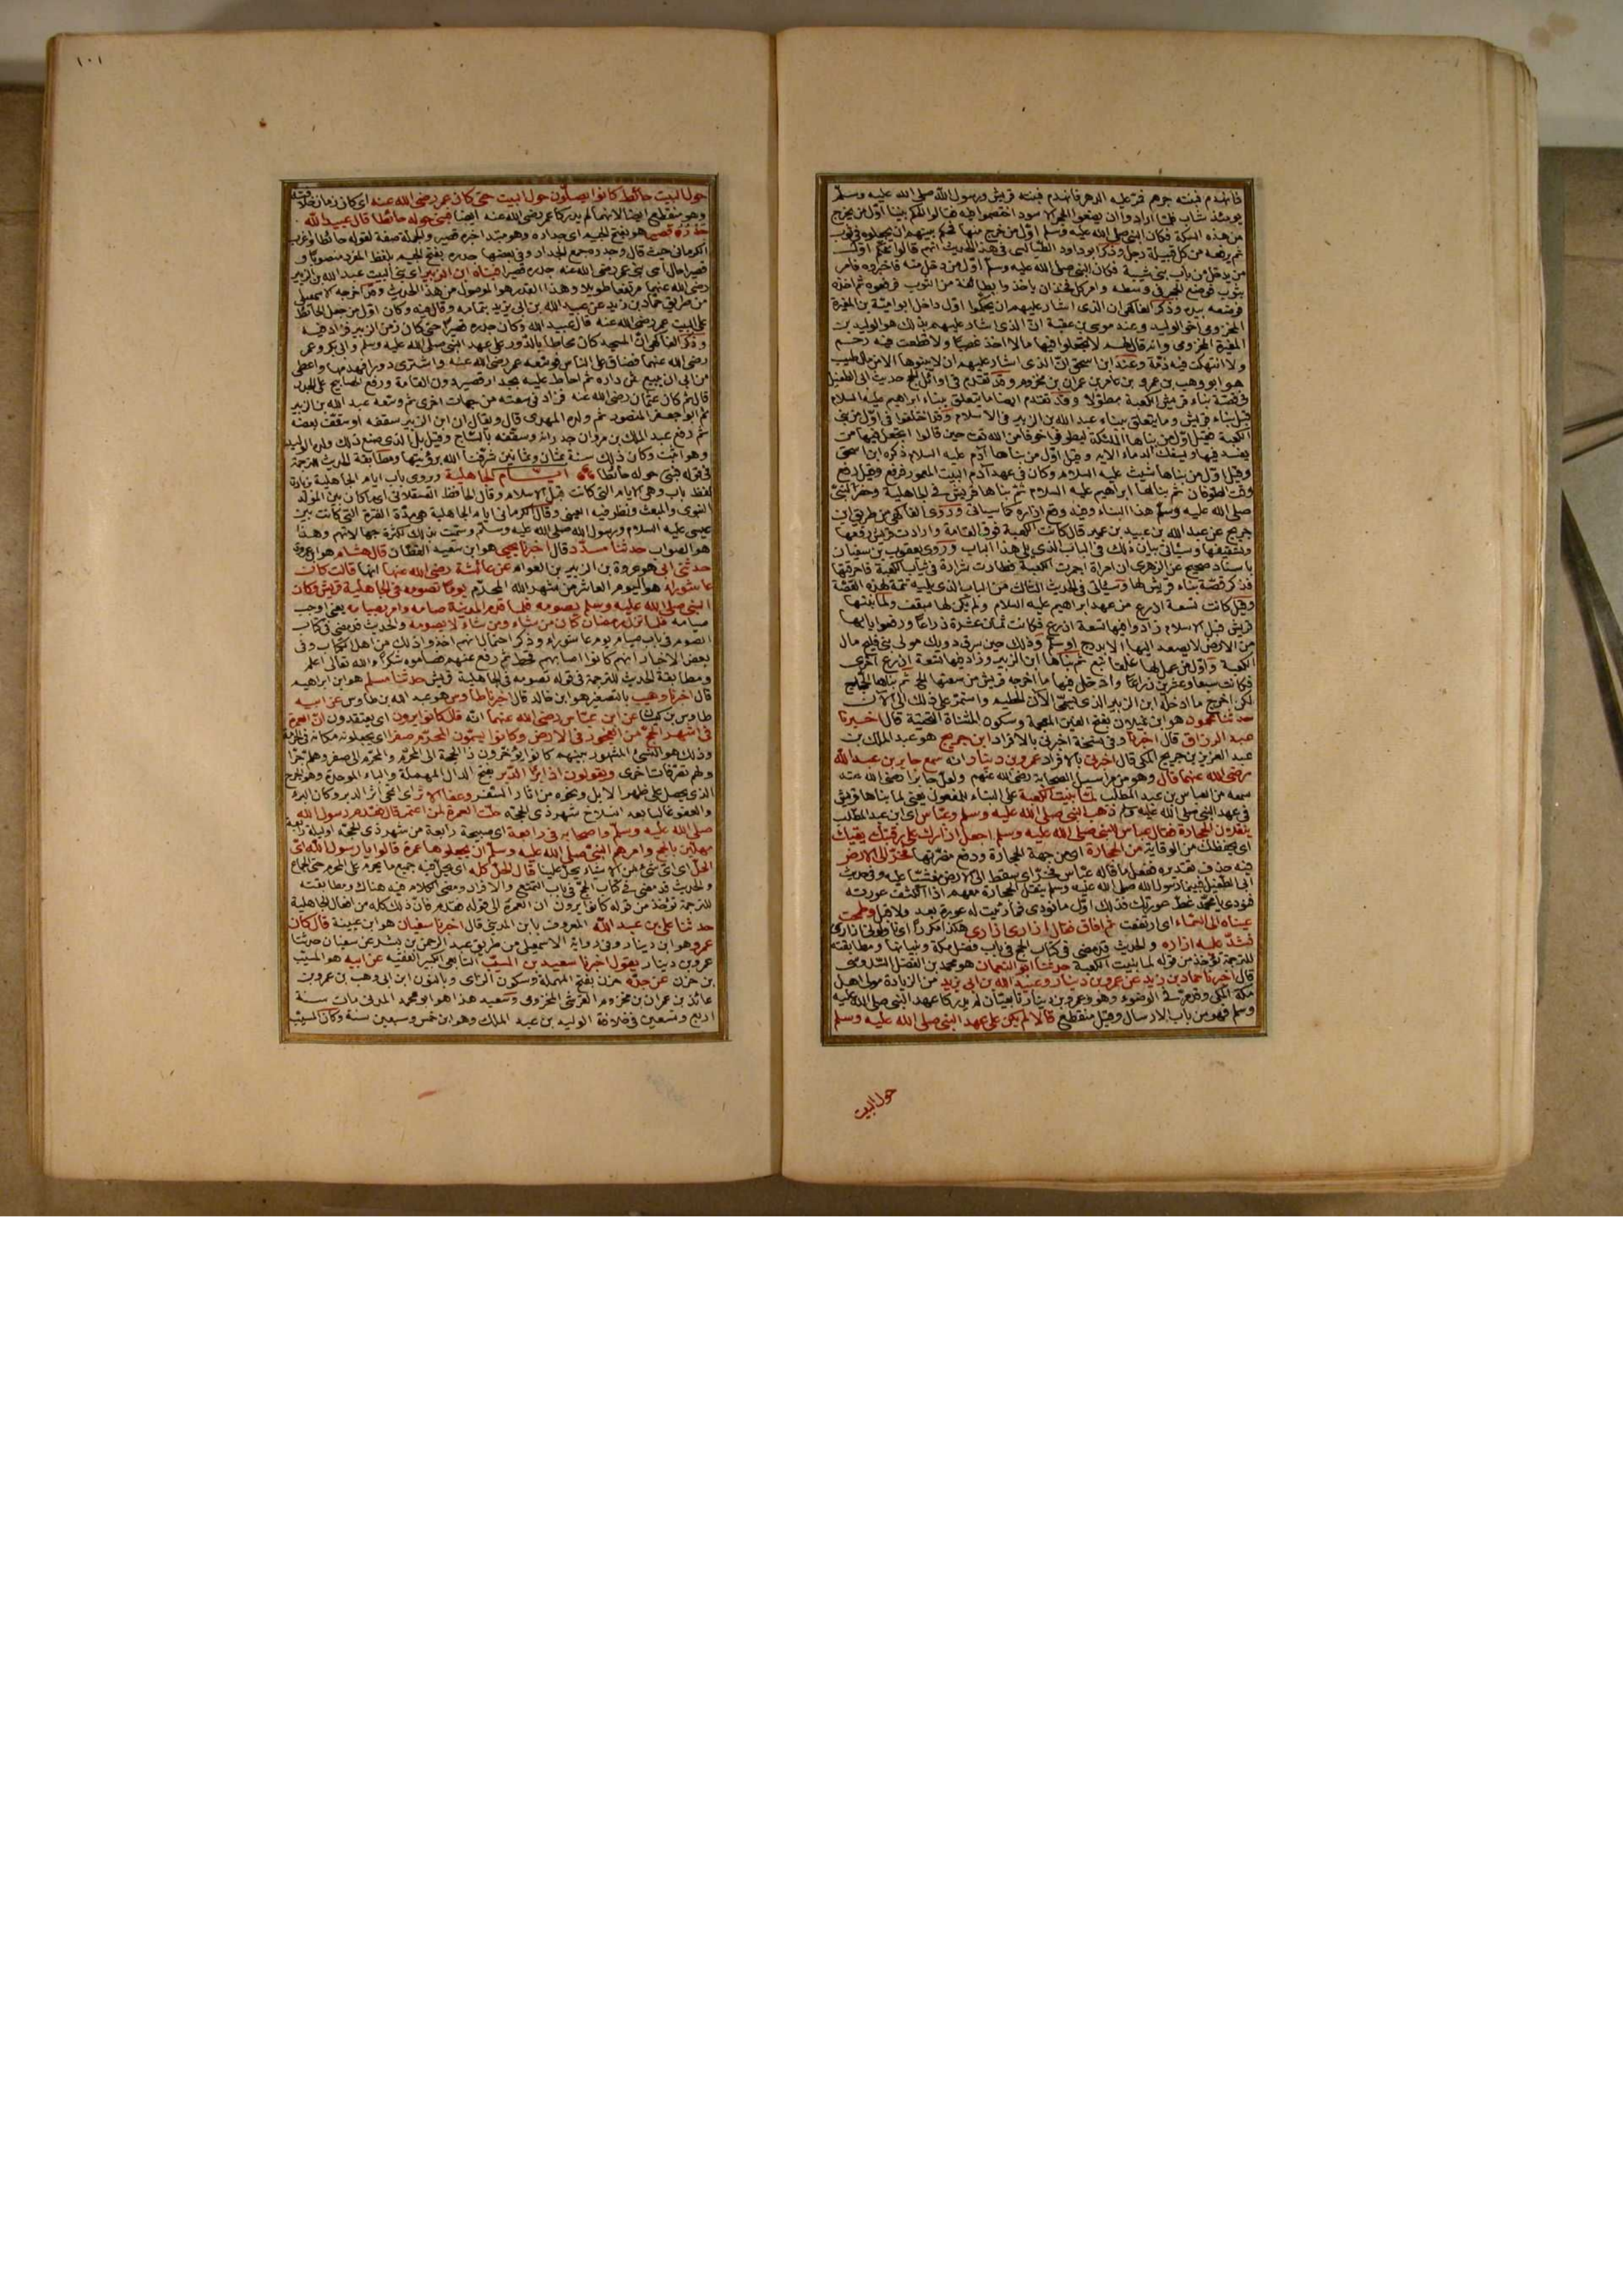 فانهدم فبنته جرهم فمر عليه الدهر فانهدم فبنته قريش ورسول الله صلى الله عليه وسلم
يومئذ شاب فلما ارادوا ان يضعوا الحجر الاسود اختصموا فيه فقالوا نحكم بيننا اول من يخرج
من هذه السكة فكان النبي صلى الله عليه وسلم اول من خرج منها فحكم بينهم ان يجعلوه في ثوب
ثم يرفعه من كل قبيلة رجل وذكر ابو داود الطيالسي في هذا الحديث انهم قالوا نحكم اول
من يدخل من باب بني شيبة فكان النبي صلى الله عليه وسلم اول من دخل منه فاخبروه فامر
بثوب فوضع الحجر في وسطه وامر كل فخذ ان ياخذوا بطائفة من الثوب فرفعوه ثم اخذه
فوضعه بيده وذكر الفاكهي ان الذي اشار عليهم ان يحكموا اول داخل ابو امية بن المغيرة
المخزومي اخو الوليد وعند موسى بن عقبة ان الذي اشار عليهم بذلك هو الوليد بن
المغيرة المخزومي وانه قال لهم لا تجعلوا فيها مالا اخذ غصبا ولا قطعت فيه رحم
ولا انتهكت فيه ذمة وعند ابن اسحق ان الذي اشار عليهم ان لا يبنوها الا من مال طيب
هو ابو وهب بن عمرو بن عامر بن عمران بن مخزوم وقد تقدم في اوائل الحج حديث ابي الطفيل
في قصة بناء قريش الكعبة مطولا وقد تقدم ايضا ما يتعلق ببناء ابراهيم عليه السلام
قبل بناء قريش وما يتعلق ببناء عبد الله بن الزبير في الاسلام وقد اختلفوا في اول من بنى
الكعبة فقيل اول من بناها الملائكة ليطوفوا خوفا من الله حين قالوا اتجعل فيها من
يفسد فيها ويسفك الدماء الاية وقيل اول من بناها آدم عليه السلام ذكره ابن اسحق
وقيل اول من بناها شيث عليه السلام وكان في عهد آدم البيت المعمور فرفع وقيل رفع
وقت الطوفان ثم بناها ابراهيم عليه السلام ثم بناها قريش في الجاهلية وحضر النبي
صلى الله عليه وسلم هذا البناء وفيه وضع ازاره كما سياتي وروى الفاكهي من طريق ابن
جريج عن عبد الله بن عبيد بن عمير قال كانت الكعبة فوق القامة وارادت قريش رفعها
وتسقيفها وسياتي بيان ذلك في الباب الذي يلي هذا الباب وروى يعقوب بن سفيان
باسناد صحيح عن الزهري ان امراة اجمرت الكعبة فطارت شرارة في ثياب الكعبة فاحرقتها
فذكر قصة بناء قريش لها وسياتي في الحديث الثالث من الباب الذي يليه تتمة لهذه القصة
وقيل كانت تسعة اذرع من عهد ابراهيم عليه السلام ولم يكن لها سقف ولما بنتها
قريش قبل الاسلام زادوا فيها تسعة اذرع فكانت ثمان عشرة ذراعا ورفعوا بابها
من الارض لا يصعد اليها الا بدرج او سلم وذلك حين سرق دويك مولى بني مليح مال
الكعبة واول من عمل لها غلقا تبع ثم بناها ابن الزبير وزاد فيها تسعة اذرع اخرى
فكانت سبعا وعشرين ذراعا وادخل فيها ما اخرجه قريش من سعتها الحجر ثم بناها الحجاج
لكن اخرج ما ادخله ابن الزبير الذي يسمى الآن الحطيم واستمر على ذلك الى الآن
حدثنا محمود هو ابن غيلان بفتح الغين المعجمة وسكون المثناة التحتية قال اخبرنا
عبد الرزاق قال اخبرنا وفي نسخة اخبرني بالافراد ابن جريج هو عبد الملك بن
عبد العزيز بن جريج المكي قال اخبرني بالافراد عمرو بن دينار انه سمع جابر بن عبد الله
رضي الله عنهما قال وهو من مراسيل الصحابة رضي الله عنهم ولعل جابرا رضي الله عنه
سمعه من العباس بن عبد المطلب لما بنيت الكعبة على البناء للمفعول يعني لما بناها قريش
في عهد النبي صلى الله عليه وسلم ذهب النبي صلى الله عليه وسلم وعباس اي ابن عبد المطلب
ينقلان الحجارة فقال عباس للنبي صلى الله عليه وسلم اجعل ازارك على رقبتك يقيك
اي يحفظك من الوقاية من الحجارة اي من جهة الحجارة ودفع مضرتها فخر الى الارض
فيه حذف تقديره ففعل ما قاله عباس فخر اي سقط الى الارض مغشيا عليه وفي حديث
ابي الطفيل فبينما رسول الله صلى الله عليه وسلم ينقل الحجارة معهم اذ انكشف عورته
فنودي يا محمد غط عورتك فذلك اول ما نودي فما رئيت له عورة بعد ولا قبل وطمحت
عيناه الى السماء اي ارتفعت ثم افاق فقال ازاري ازاري هكذا مكررا اي ناولوني ازاري
فشد عليه ازاره والحديث قد مضى في كتاب الحج في باب فضل مكة وبنيانها ومطابقته
للترجمة تؤخذ من قوله لما بنيت الكعبة حدثنا ابو النعمان هو محمد بن الفضل السدوسي
قال اخبرنا حماد بن زيد عن عمرو بن دينار وعبيد الله بن ابي يزيد من الزيادة مولى اهل
مكة المكي وقد مر في الوضوء وهو وعمرو بن دينار تابعيان لم يدركا عهد النبي صلى الله عليه
وسلم فهو من باب الارسال وقيل منقطع قالا لم يكن على عهد النبي صلى الله عليه وسلم
حول البيت
١٠١
حول البيت حائط كانوا يصلون حول البيت حتى كان عمر رضي الله عنه اي كان زمان خلافته
وهو منقطع ايضا لانهما لم يدركا عمر رضي الله عنه ايضا فبنى حوله حائطا قال عبيد الله
جدره قصير هو بفتح الجيم اي جداره وهو مبتدا خبره قصير والجملة صفة لقوله حائطا واغرب
الكرماني حيث قال وجدره جمع الجدار وفي بعضها جدره بفتح الجيم بلفظ المفرد منصوبا و
قصيرا حال اي بنى عمر رضي الله عنه جدره قصيرا فبناه ابن الزبير اي بنى البيت عبد الله بن الزبير
رضي الله عنهما مرتفعا طويلا وهذا القدر هو الموصول من هذا الحديث وقد اخرجه الاسمعيلي
من طريق حماد بن زيد عن عبيد الله بن ابي يزيد بتمامه وقال فيه وكان اول من جعل الحائط
على البيت عمر رضي الله عنه قال عبيد الله وكان جدره قصيرا حتى كان زمن الزبير فزاد فيه
وذكر الفاكهي ان المسجد كان محاطا بالدور على عهد النبي صلى الله عليه وسلم وابي بكر وعمر
رضي الله عنهما فضاق على الناس فوسعه عمر رضي الله عنه واشترى دورا فهدمها واعطى
من ابى ان يبيع ثمن داره ثم احاط عليه بجدار قصير دون القامة ورفع المصابيح على الجدر
قال ثم كان عثمان رضي الله عنه فزاد في سعته من جهات اخرى ثم وسعه عبد الله بن الزبير
ثم ابو جعفر المنصور ثم ولده المهدي قال ويقال ان ابن الزبير سقفه او سقف بعضه
ثم رفع عبد الملك بن مروان جدرانه وسقفه بالساج وقيل بل الذي صنع ذلك ولده الوليد
وهو اثبت وكان ذلك سنة ثمان وثمانين شرفنا الله برؤيتها ومطابقة الحديث للترجمة
في قوله فبنى حوله حائطا باب ايام الجاهلية وروي باب ايام الجاهلية بزيادة
لفظ باب وهي الايام التي كانت قبل الاسلام وقال الحافظ العسقلاني اي ما كان بين المولد
النبوي والمبعث ونظر فيه العيني وقال الكرماني ايام الجاهلية هي مدة الفترة التي كانت بين
عيسى عليه السلام ورسول الله صلى الله عليه وسلم وسميت بذلك لكثرة جهالاتهم وهذا
هو الصواب حدثنا مسدد قال اخبرنا يحيى هو ابن سعيد القطان قال هشام هو ابن عروة
حدثني ابي هو عروة بن الزبير بن العوام عن عائشة رضي الله عنها انها قالت كان
عاشوراء هو اليوم العاشر من شهر الله المحرم يوما تصومه في الجاهلية قريش وكان
النبي صلى الله عليه وسلم يصومه فلما قدم المدينة صامه وامر بصيامه يعني اوجب
صيامه فلما نزل رمضان كان من شاء ومن شاء لا يصومه والحديث قد مضى في كتاب
الصوم في باب صيام يوم عاشوراء وذكر احتمالا انهم اخذوا ذلك من اهل الكتاب وفي
بعض الاخبار انهم كانوا اصابهم قحط ثم رفع عنهم فصاموه شكرا والله تعالى اعلم
ومطابقة الحديث للترجمة في قوله تصومه في الجاهلية قريش حدثنا مسلم هو ابن ابراهيم
قال اخبرنا وهيب بالتصغير هو ابن خالد قال اخبرنا ابن طاوس هو عبد الله بن طاوس عن ابيه
طاوس بن كيسان عن ابن عباس رضي الله عنهما انه قال كانوا يرون اي يعتقدون ان العمرة
في اشهر الحج من الفجور في الارض وكانوا يسمون المحرم صفرا اي يجعلونه مكانه في الحرمة
وذلك هو النسئ المشهور بينهم كانوا يؤخرون ذا الحجة الى المحرم والمحرم الى صفر وهلم جرا
ولهم تصرفات اخرى ويقولون اذا برا الدبر بفتح الدال المهملة والباء الموحدة وهو الجرح
الذي يحصل على ظهر الابل ونحوه من آثار السفر وعفا الاثر اي انمحى اثر الدبر وكان البرء
والعفو غالبا بعد انسلاخ شهر ذي الحجة حلت العمرة لمن اعتمر قال فقدم رسول الله
صلى الله عليه وسلم واصحابه في رابعة اي صبيحة رابعة من شهر ذي الحجة او ليلة رابعة
مهلين بالحج وامرهم النبي صلى الله عليه وسلم ان يجعلوها عمرة قالوا يا رسول الله اي
الحل اي اي شئ من الاشياء يحل علينا قال الحل كله اي يحل فيه جميع ما يحرم على المحرم حتى الجماع
والحديث قد مضى في كتاب الحج في باب التمتع والافراد ومضى الكلام فيه هناك ومطابقته
للترجمة تؤخذ من قوله كانوا يرون ان العمرة الى قوله فقدم فان ذلك كله من افعال الجاهلية
حدثنا علي بن عبد الله المعروف بابن المديني قال اخبرنا سفيان هو ابن عيينة قال كان
عمرو هو ابن دينار وفي رواية الاسمعيلي من طريق عبد الرحمن بن بشر عن سفيان حدثنا
عمرو بن دينار يقول اخبرنا سعيد بن المسيب التابعي الكبير الفقيه عن ابيه هو المسيب
بن حزن عن جده حزن بفتح المهملة وسكون الزاى وبالنون ابن ابي وهب بن عمرو بن
عائذ بن عمران بن مخزوم القرشي المخزومي وسعيد هذا هو ابو محمد المدني مات سنة
اربع وتسعين في خلافة الوليد بن عبد الملك وهو ابن خمس وسبعين سنة وكان المسيب